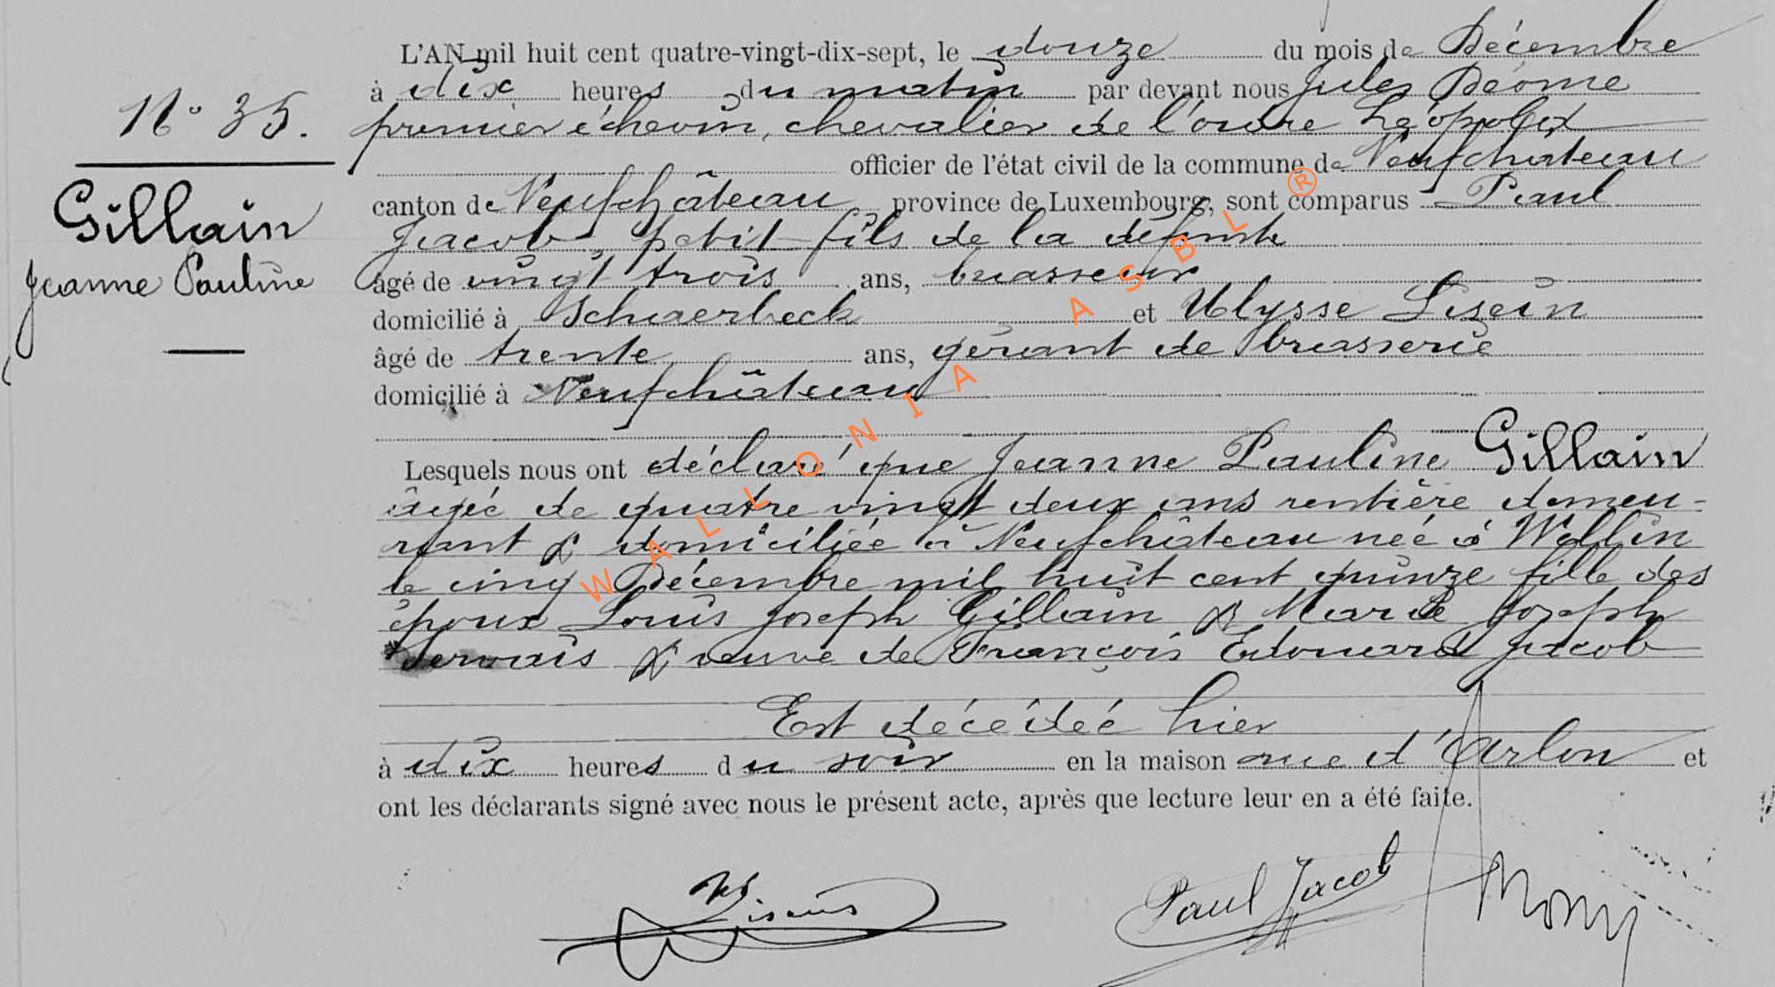 L'AN mil huit cent quatre-vingt-dix-sept, le douze du mois de Décembre
à dix heures du matin par devant nous Jules Déome
N° 35. premier échevin, chevalier de l'ordre Léopold
officier de l'état civil de la commune de Neufchateau
Gillain canton de Neufchâteau province de Luxembourg, sont comparus Paul
Jacob, petit fils de la défunte
Jeanne Pauline âgé de vingt trois ans, brasseur
domicilié à Schaerbeck et Ulysse Lisein
âgé de trente ans, gérant de brasserie
domicilié à Neufchâteau
Lesquels nous ont déclaré que Jeanne Pauline Gillain
âgée de quatre vingt deux ans rentière demeu-
rant & domiciliée à Neufchâteau née à Wellin
le cinq Décembre mil huit cent quinze fille des
époux Louis Joseph Gillain & Marie Joseph
Servais & veuve de François Edouard Jacob
Est décédée hier
à dix heures du soir en la maison rue d'Arlon et
ont les déclarants signé avec nous le présent acte, après que lecture leur en a été faite.
Paul Jacob
WALLONIA ASBL ®